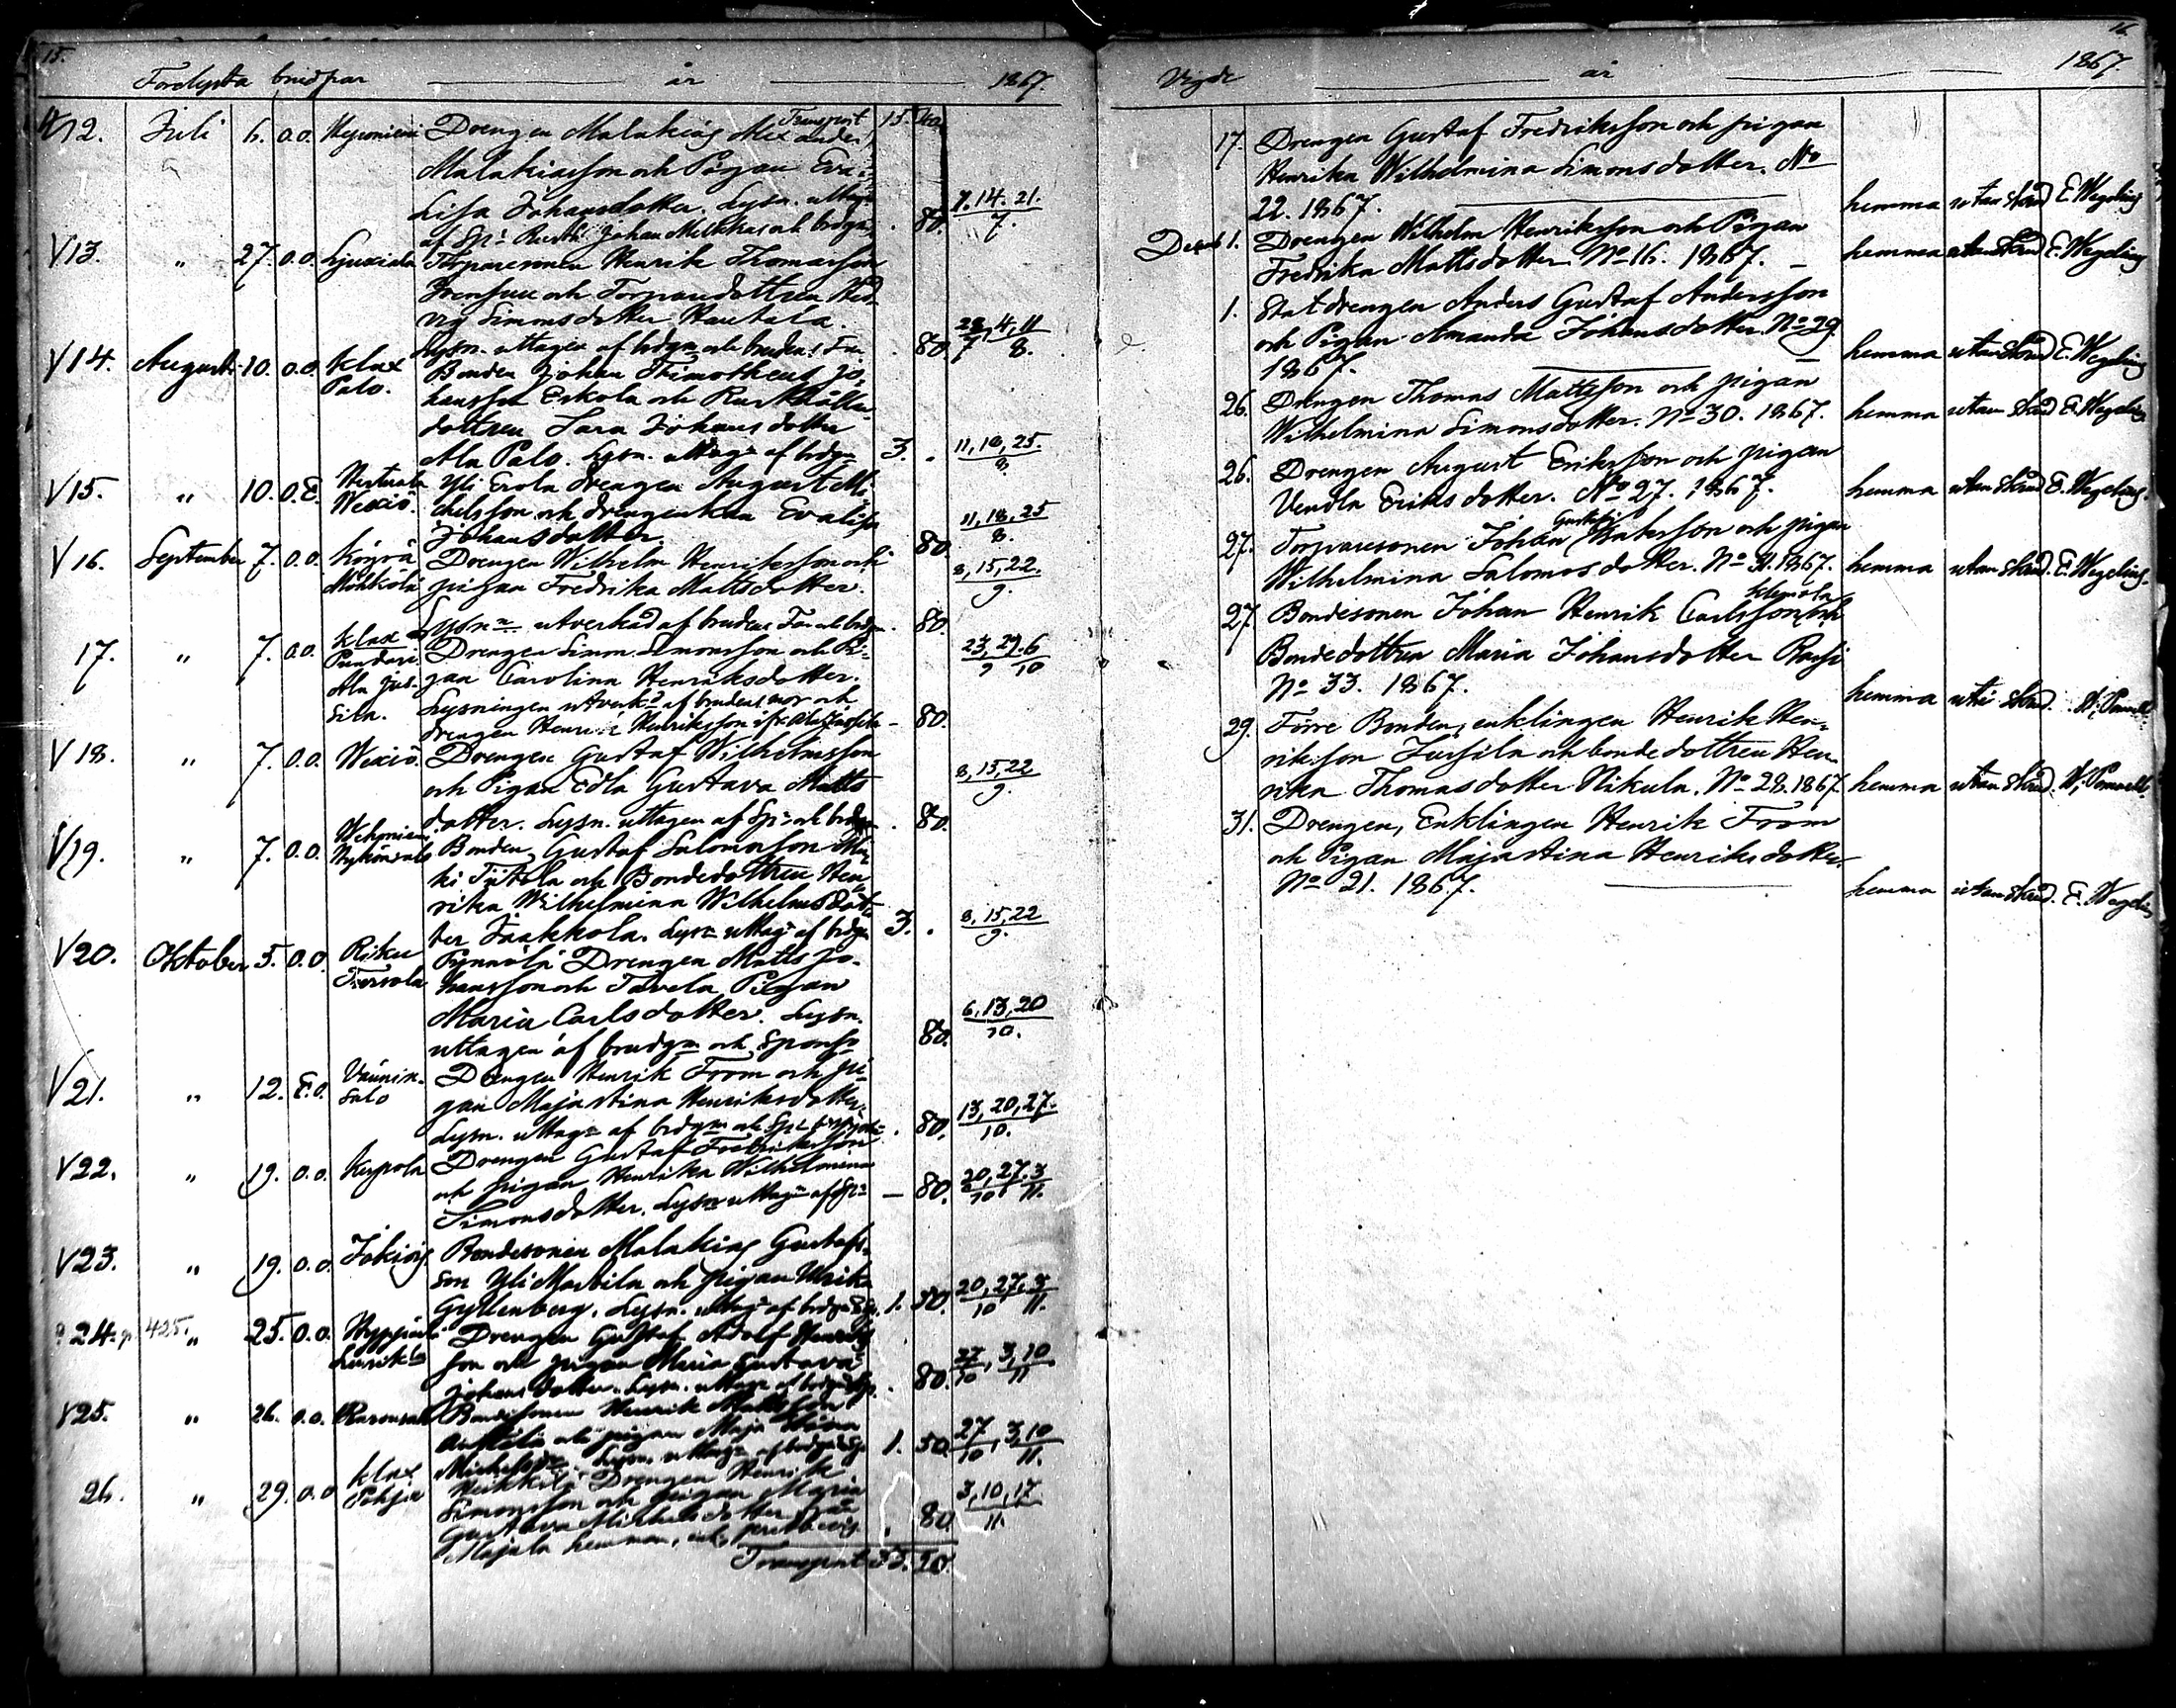 15.
Förelysta brudpar år 1867.
Transport 15.
12. Juli 6. o.o. Drengen Malakias Alexander
Malakiasson och Pigan Eva
Lisa Johansdotter. Lysn. uttag.
af Johan och brdgm . 80. 7.14.21./7.
V13. " 27. o.o. Torparesonen Henrik Thomasson
och Torparedottren Hed-
vig Simonsdotter Hautala.
Lysn. uttagen af brdgm och brudens Far . 80. 28/7, 4, 11/8.
V14. Augusti 10. o.o. Klax Palo. Bonden Johan Thimotheus Jo-
hansson Eskola och Rusthållare-
dottren Sara Johansdotter
Ala Palo. Lysn. uttagn af brdgm 3. . 11, 18, 25./8
V15. " 10. o.E. Wexiö. Yli Erola drengen August Mi-
chelsson och drengenkan Evalisa
Johansdotter. 80. 11, 18, 25/8.
V16. September 7. o.o. Köyrä Drengen Wilhelm Henriksson och
pigan Fredrika Mattsdotter. 8, 15, 22./9.
Lysn. utverkad af brudens Far och brdgm. 80.
17. " 7. o.o. Klax Drengen Simon Simonsson och Pi-
Ala Jus- gan Carolina Henriksdotter. 23, 29/9 6/10
sila. Lysningen utverk. af brudens mor och
drengen Henrik Henriksson – 80.
V18. " 7. o.o. Wexiö. Drengen Gustaf Wilhelmsson
och Pigan Edla Gustava Matts
dotter. Lysn. uttagen af Sp. och brdgm . 80. 8, 15, 22/9.
V19. " 7. o.o. Bonden Gustaf Salomonsson
och Bondedottren Hen
rika Wilhelmina Wilhelmsdot-
ter Jaakkola. Lysn uttagn af brdgm 3. . 8, 15, 22/9.
V20. Oktober 5. o.o. Drengen Matts Jo-
hansson och Tavela Pigan
Maria Carlsdotter. Lysn.
uttagen af brudgm och 80. 6, 13, 20/10.
V21. " 12. E.o. Drengen Henrik From och pi-
gan Majastina Henriksdotter.
Lysn. uttagn af brdgm och . 80. 13, 20, 27./10.
V22. " 19. o.o. Drengen Gustaf Fredriksson
och pigan Henrika Wilhelmina
Simonsdotter. Lysn uttagn af – 80. 20, 27/10 3/11.
V23. " 19. o.o. Jokiois Bondesonen Malakias Gustafs-
son Yli Marvila och pigan Ulrika
Gyllenberg. Lysn. uttagn af brdgm 1. 50. 20, 27/10 3/11.
24. 425. " 25. o.o. Drengen Gustaf Adolf Henriks
son och pigan Maria Gustava
Johansdotter. Lysn. uttagn af brdgm . 80. 27/10, 3, 10/11
V25. " 26. o.o. Bondesonen Henrik Mattsson
och pigan Maja Stina
Lysn. uttagn af brdgm 1. 50. 27/10, 3, 10/11.
26. " 29. o.o Klax Pohja Heikkilä Drengen Henrik
Simonsson och pigan Maria
Gustava Michelsdotter från
Majala hemman, . 80 3, 10, 17/11.
Transport
16.
Vigde år 1867.
17. Drengen Gustaf Fredriksson och pigan
Henrika Wilhelmina Simonsdotter. No
22. 1867. hemma utan skrud E. Wegelius
Decemb 1. Drengen Wilhelm Henriksson och Pigan
Fredrika Mattsdotter. No 16. 1867. hemma utan skrud E. Wegelius
1. Statdrengen Anders Gustaf Andersson
och Pigan Amanda Johansdotter. No 29.
1867. hemma utan skrud E. Wegelius
26. Drengen Thomas Mattsson och pigan
Wilhelmina Simonsdotter. No 30. 1867. hemma utan skrud E. Wegelius
26. Drengen August Eriksson och pigan
Vendla Eriksdotter. No 27. 1867. hemma utan skrud E. Wegelius.
27. Torparesonen Johan Gustaf och pigan
Wilhelmina Salomosdotter. No 31. 1867. hemma utan skrud. E. Wegelius.
27. Bondesonen Johan Henrik Carlsson Klemola och
Bondedottren Maria Johansdotter Rassi
No 33. 1867. hemma skrud.
29. Förre Bonden, enklingen Henrik Hen-
riksson Jussila och bondedottren Hen-
rika Thomasdotter Nikula. No 28. 1867 hemma utan skrud.
31. Drengen, Enklingen Henrik From
och Pigan Majastina Henriksdotter.
No 21. 1867. hemma utan skrud. E. Wegelius